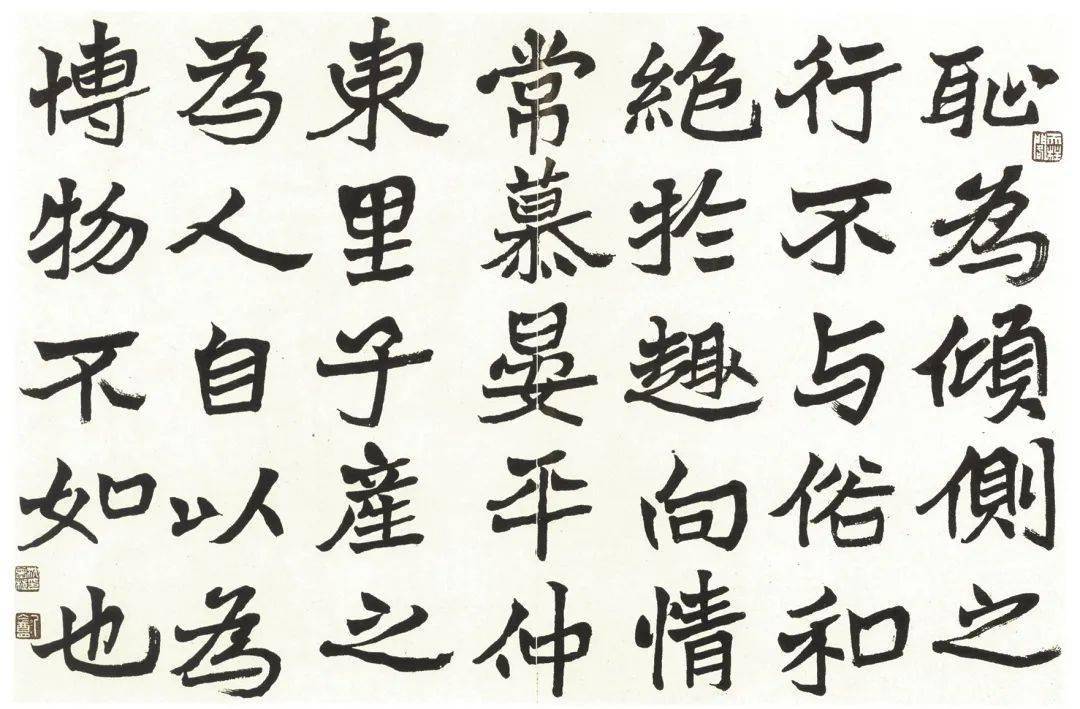 恥為傾側之
行不与俗和
絶於趣向情
常慕晏平仲
東里子產之
為人自以為
博物不如也